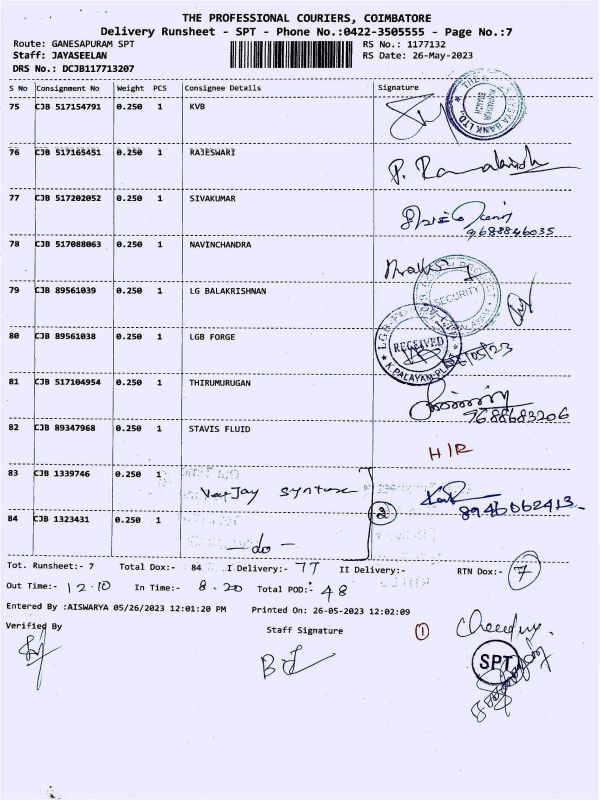 THE PROFESSIONAL COURIERS, COIMBATORE
Delivery Runsheet - SPT - Phone No.:0422-3505555 - Page No.:7
Route: GANESAPURAM SPT RS No.: 1177132
Staff: JAYASEELAN RS Date: 26-May-2023
DRS No.: DCJB117713207
S No Consignment No Weight PCS Consignee Details Signature
75 CJB 517154791 0.250 1 KVB
76 CJB 517165451 0.250 1 RAJESWARI
77 CJB 517202052 0.250 1 SIVAKUMAR
9688846035
78 CJB 517088063 0.250 1 NAVINCHANDRA
79 CJB 89561039 0.250 1 LG BALAKRISHNAN
SECURITY
80 CJB 89561038 0.250 1 LGB FORGE
RECEIVED
81 CJB 517104954 0.250 1 THIRUMURUGAN
9688683206
82 CJB 89347968 0.250 1 STAVIS FLUID
H/R
83 CJB 1339746 0.250 1
8946062413
84 CJB 1323431 0.250 1 -do- 2
Tot. Runsheet:- 7 Total Dox:- 84 I Delivery:- 77 II Delivery:- RTN Dox:- 7
Out Time:- 12.10 In Time:- 8.20 Total POD:- 48
Entered By :AISWARYA 05/26/2023 12:01:20 PM Printed On: 26-05-2023 12:02:09
Verified By Staff Signature 1
SPT